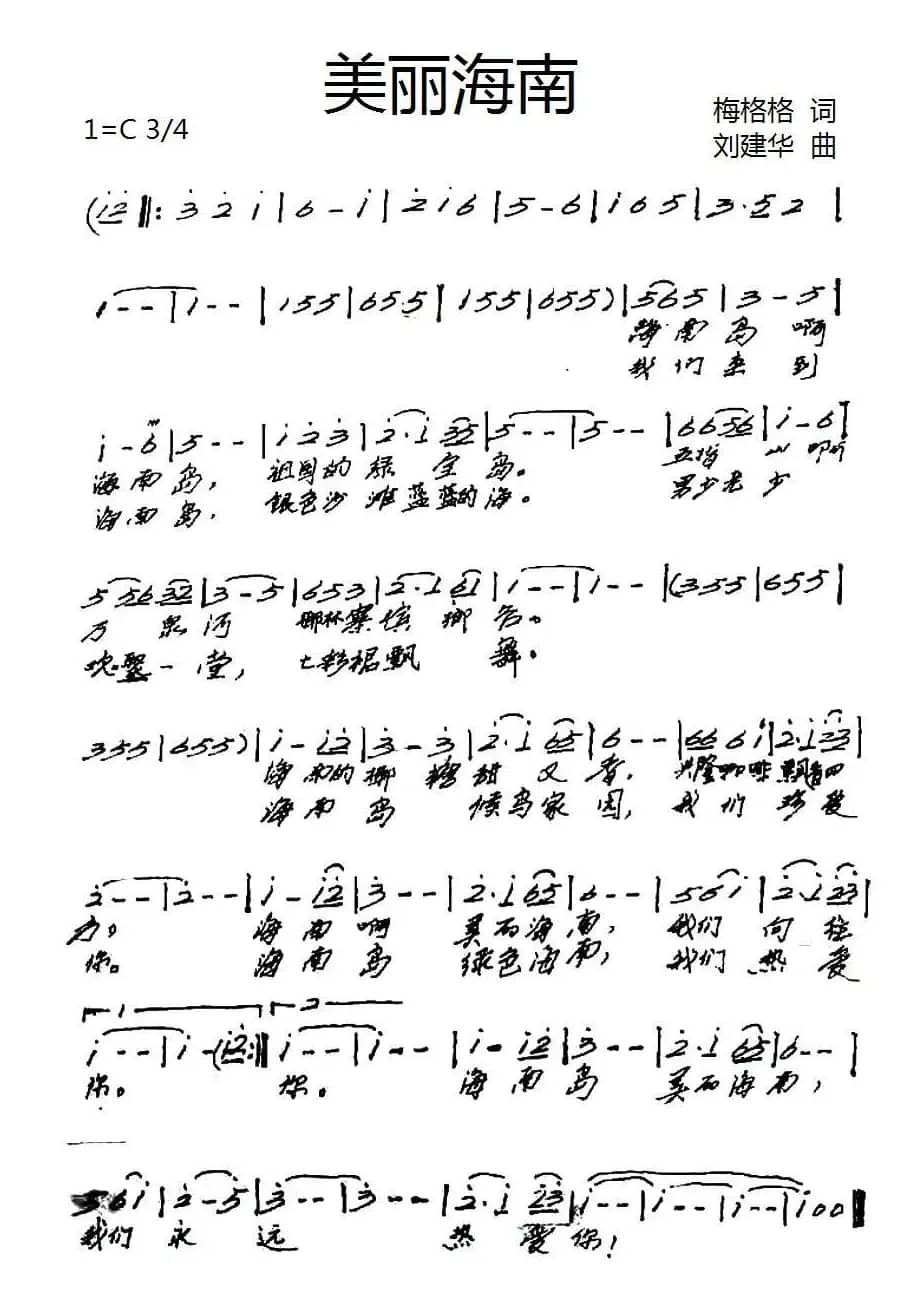 美丽海南
1=C 3/4
梅格格 词
刘建华 曲
(i̲2̲ ‖: 3 2 i | 6 - i | 2 i 6 | 5 - 6 | i 6 5 | 3 · 5̲ 2 |
1 - - | 1 - - | 1 5 5 | 6 5 5 | 1 5 5 | 6 5 5 ) | 5 6 5 | 3 - 5 |
海南岛啊
我们来到
i - 6 | 5 - - | i 2 3 | 2 · i 3̲5̲ | 5 - - | 5 - - | 6 6 5̲6̲ | i - 6 |
海南岛, 祖国的绿宝岛。 五指山啊
海南岛, 银色沙滩蓝蓝的海。 男少老少
5 5̲6̲ 3̲2̲ | 3 - 5 | 6 5 3 | 2 · 1 6̲1̲ | 1 - - | 1 - - | ( 3 5 5 | 6 5 5 |
万泉河 椰林寨 槟榔
欢聚一堂, 七彩裙飘舞。
3 5 5 | 6 5 5 ) | i - i̲2̲ | 3 - 3 | 2 · i 6̲5̲ | 6 - - | 6̲6̲ 6 i | 2 · i 2̲3̲ |
海南的椰糖甜又香, 兴隆咖啡飘香四
海南岛 候鸟家园, 我们珍爱
2 - - | 2 - - | i - i̲2̲ | 3 - - | 2 · i 6̲5̲ | 6 - - | 5 6 i | 2 · i 2̲3̲ |
方。 海南啊 美丽海南, 我们向往
你。 海南岛 绿色海南, 我们热爱
1 2
i - - | i - (i̲2̲ :‖ i - - | i - - | i - i̲2̲ | 3 - - | 2 · i 6̲5̲ | 6 - - |
你。 你。 海南岛 美丽海南,
5 6 i | 2 - 5 | 3 - - | 3 - - | 2 · i i̲3̲ | i - - | i - - | i - - | i 0 0 ‖
我们永远 热爱你!